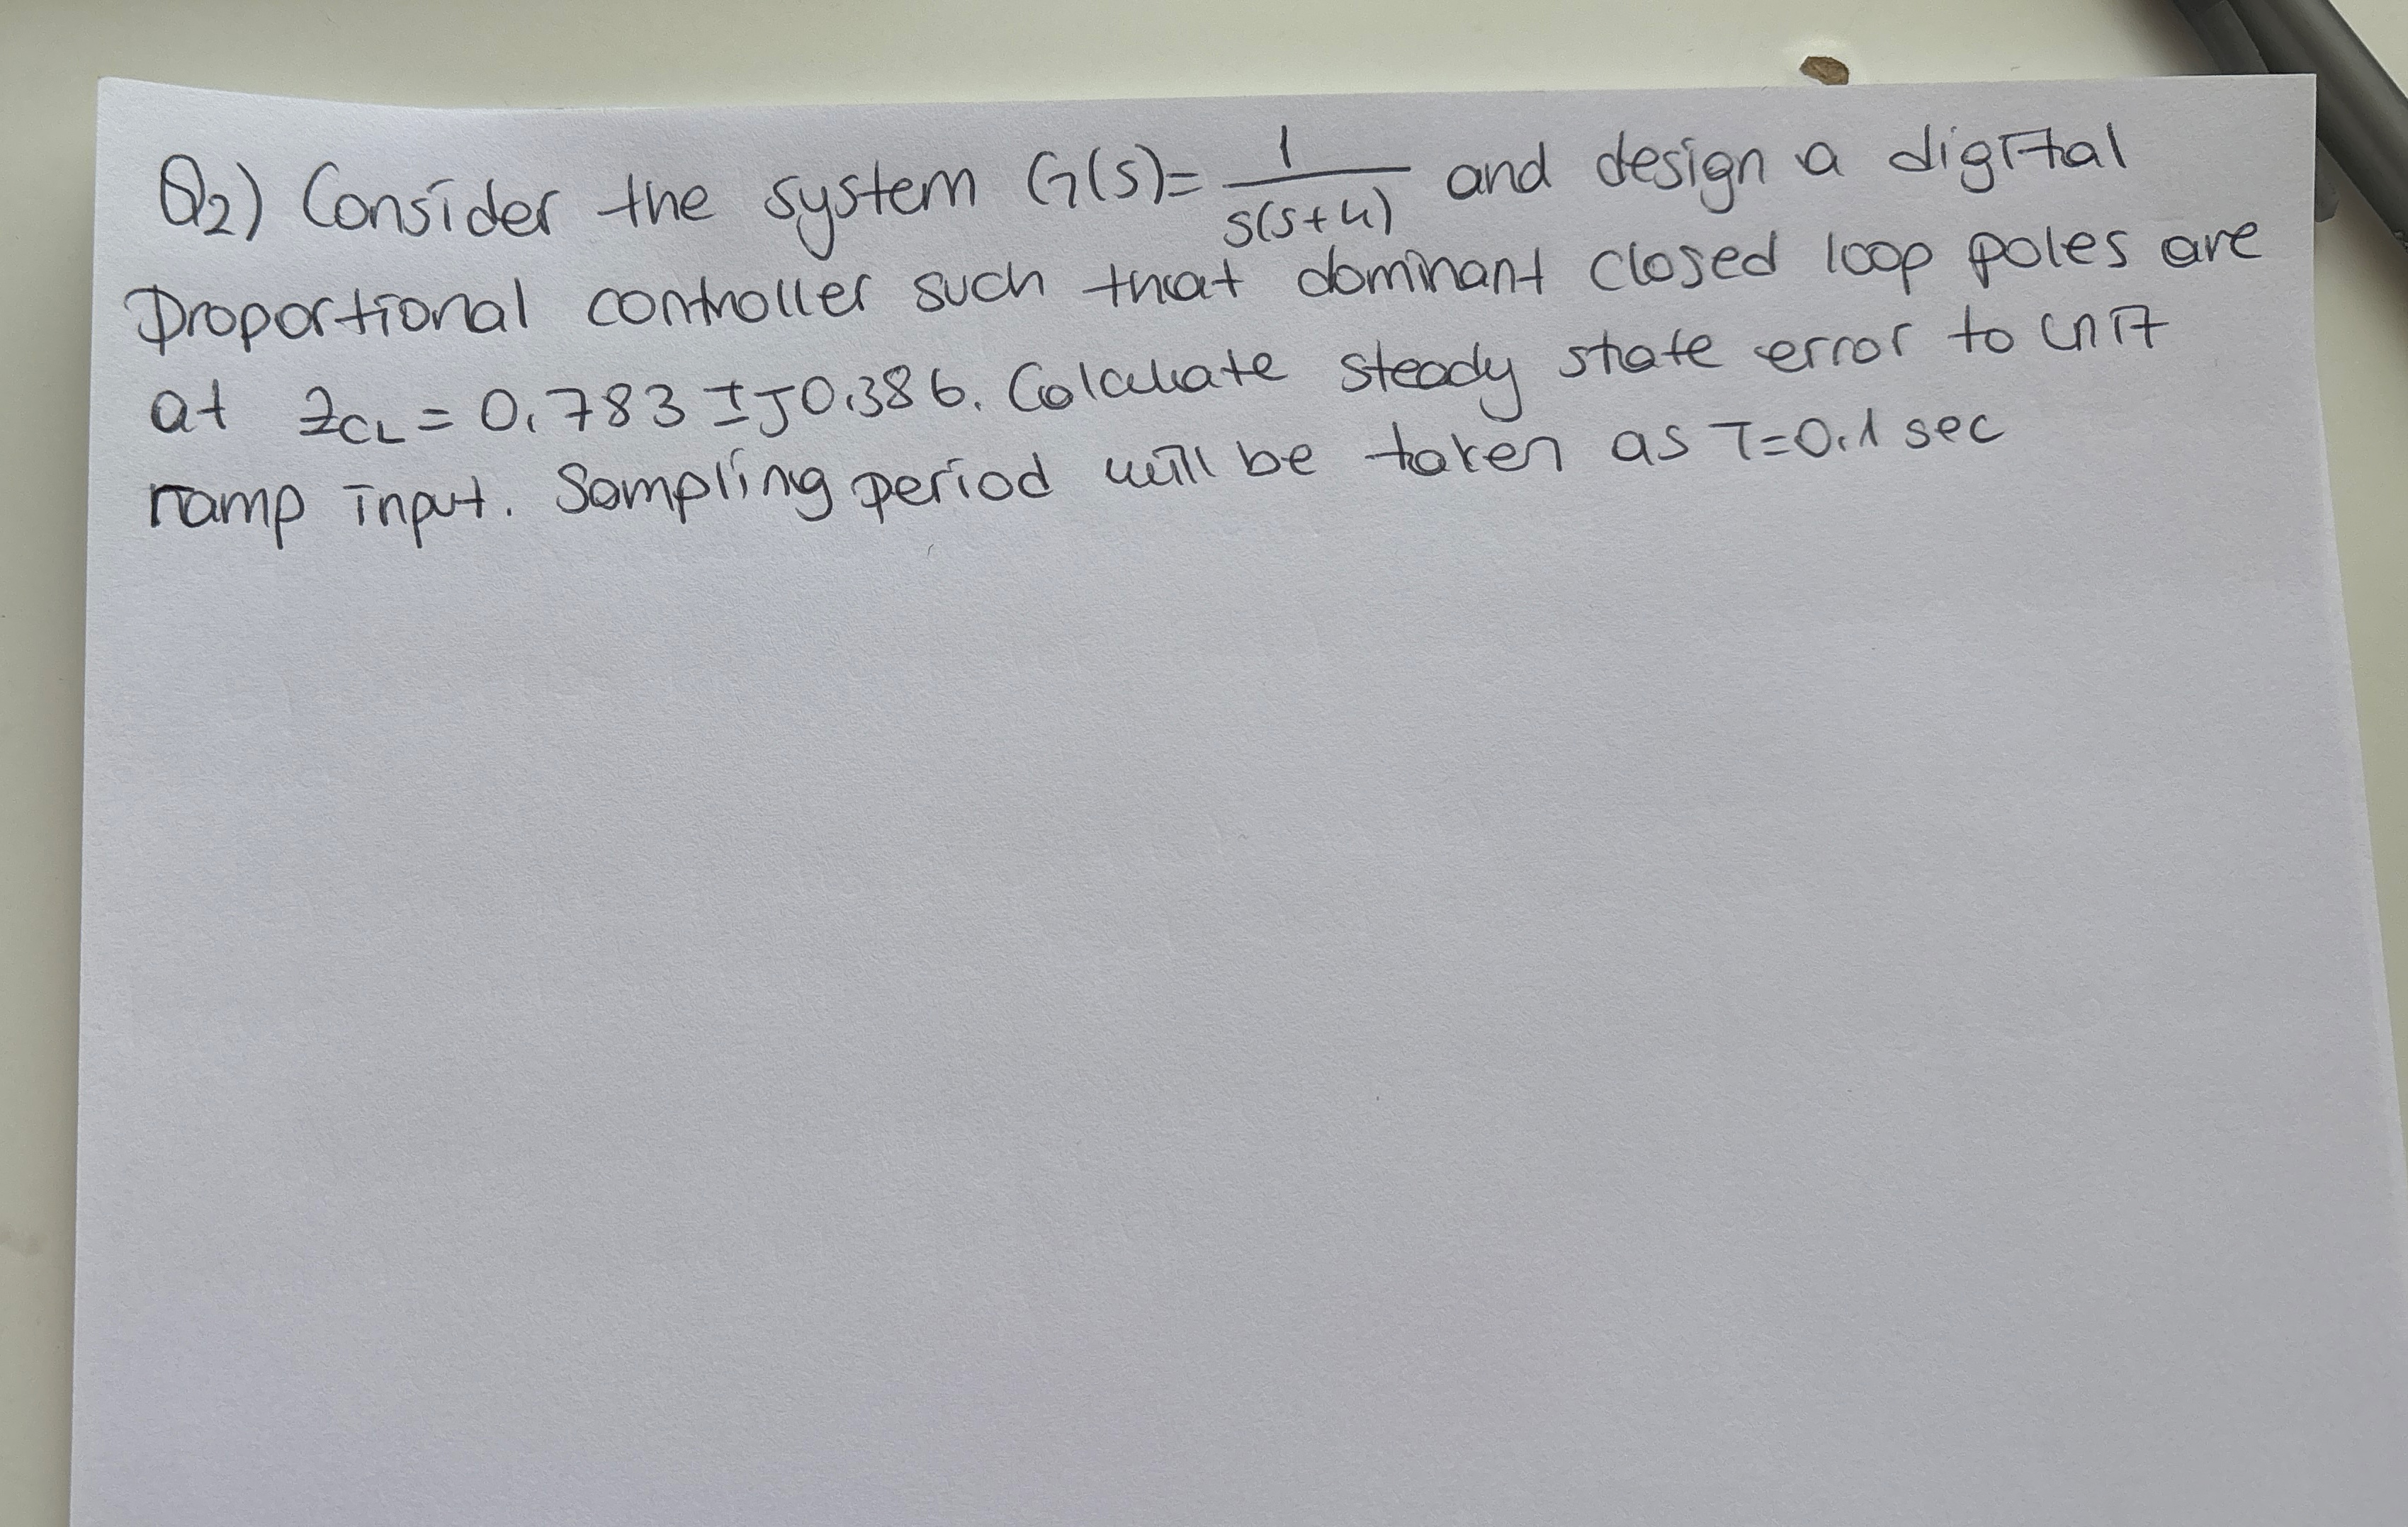 Q2) Consider the system G(s)= 1/(s(s+4)) and design a digital
Proportional controller such that dominant closed loop poles are
at zCL = 0.783 ± j0.386. Calculate steady state error to unit
ramp input. Sampling period will be taken as T=0.1 sec